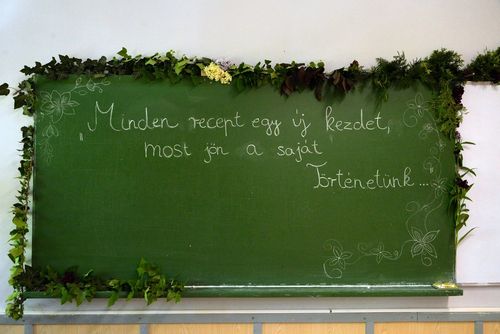 „Minden recept egy új kezdet,
most jön a saját
Történetünk...